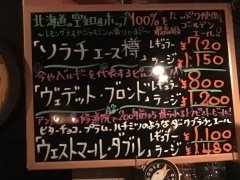 北海道の空知のホップ100%を たっぷり使用
〜レモングラスやジャスミンの香り
ゴールデンエール
「ソラチエース樽」 レギュラー 720
ラージ 1,150
今やベルギーを代表するピルスナー
「ヴェデット・ブロンド」 レギュラー 800
ラージ 1,200
修道院で
ビターチョコ、プラム、ハチミツのようなダークブラウンエール
「ウェストマール・ダブル」 レギュラー 1,100
ラージ 1,480